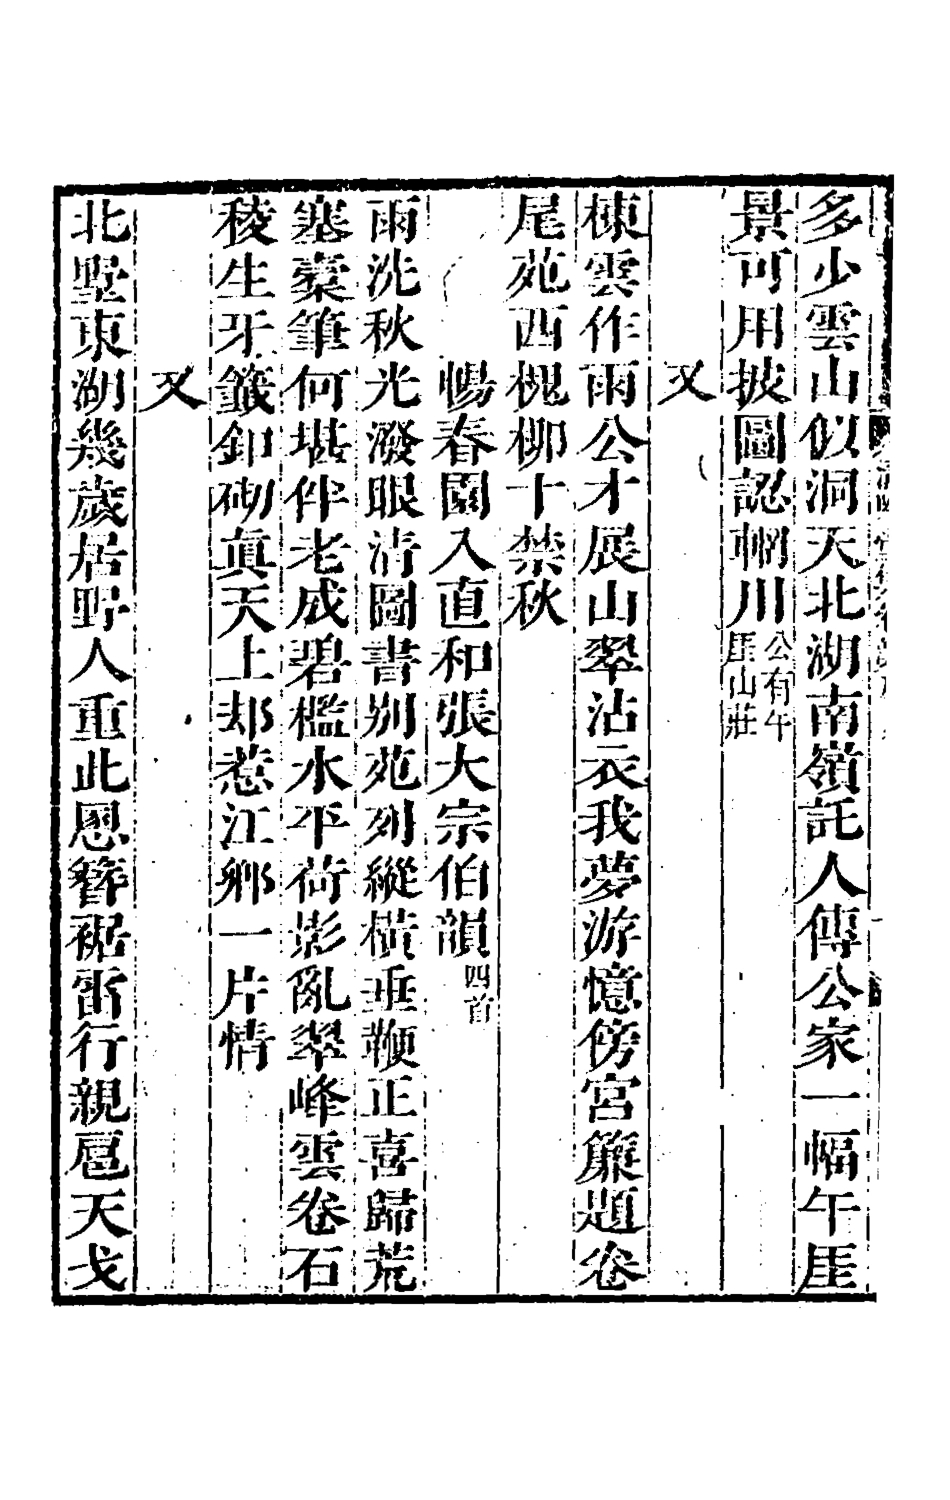 多少雲山似洞天北湖南嶺託人傳公家一幅午厓
景可用披圖認輞川公有午厓山莊
又
棟雲作雨公才展山翠沾衣我夢游憶傍宮簾題卷
尾苑西槐柳十禁秋
暢春園入直和張大宗伯韻四首
雨洗秋光潑眼清圖書別苑列縱橫垂鞭正喜歸荒
塞橐筆何堪伴老成碧檻水平荷影亂翠峰雲卷石
稜生牙籤釦砌真天上却惹江鄉一片情
又
北墅東湖幾歲居野人重此恩簪裾雷行親扈天戈